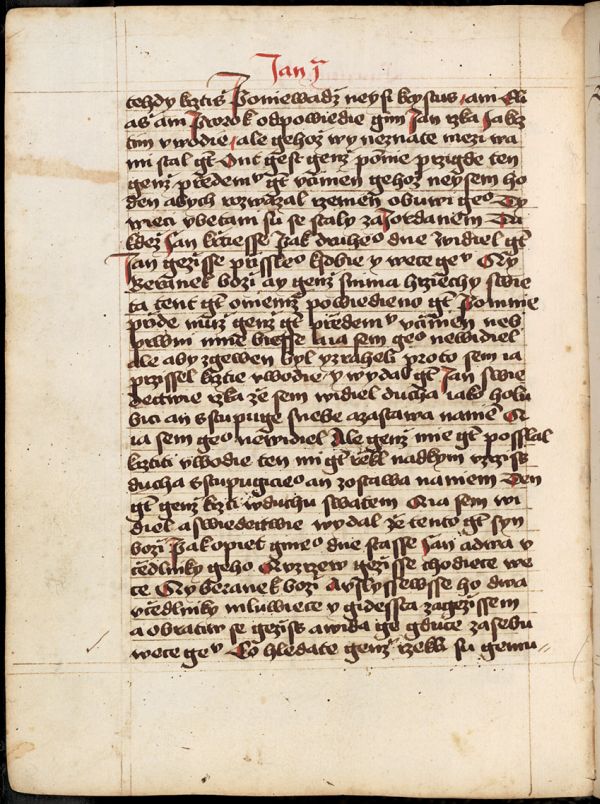 Jan j
tehdy krztiś Poniewadz neysi krystus, am Eli
as am Prorok odpowiedie gim Jan rzka Ja krz
tim v wodie, ale gehoz wy neznate mezi wa
mi stal gt Ont gest genz pomie przigde ten
genz przedemv gt vczinien gehoz neysem ho
den abych rozwazal rzemen obuwi geo Ty
wieci v betani su se staly za Jordanem Tu
kdez Jan krztiesse Pak druheo dne widiel gt
Jan gezisse prissleo k sobie y wece gev Ay
beranek bozi ay genz snima hrziechy swie
ta tent gt o niemz powiedieno gt Po mnie
prijde muz genz gt przedemv vczinien neb
prwni mne biesse a ia sem geo newidiel
ale aby zgewen byl v izraheli proto sem ia
przissel krztie v wodie, y wydal gt Jan swie
dectwie rzka ze sem widiel ducha iako holu
bici an sstupuge s nebe a zastawa na niem A
ia sem geo newidiel Ale genz mie gt posslal
krztiti v wodie ten mi gt rzekl nad kym vzrziss
ducha sstupugicieo an zostawa na niem Ten
gt genz krzti w duchu swatem A ia sem wi
diel a swiedectwie wydal ze tento gt syn
bozi Pak opiet gineo dne stasse Jan a dwa v
czedlniky geho A vzrzew gezisse chodiece we
ce Ay beranek bozi A vslyssewsse ho dwa
vczedlniky mluwiece y gidessta za gezissem
a obratiw se geziss a wida ge gduce za sebu
wece gev Co hledate genz rzekli su gemu